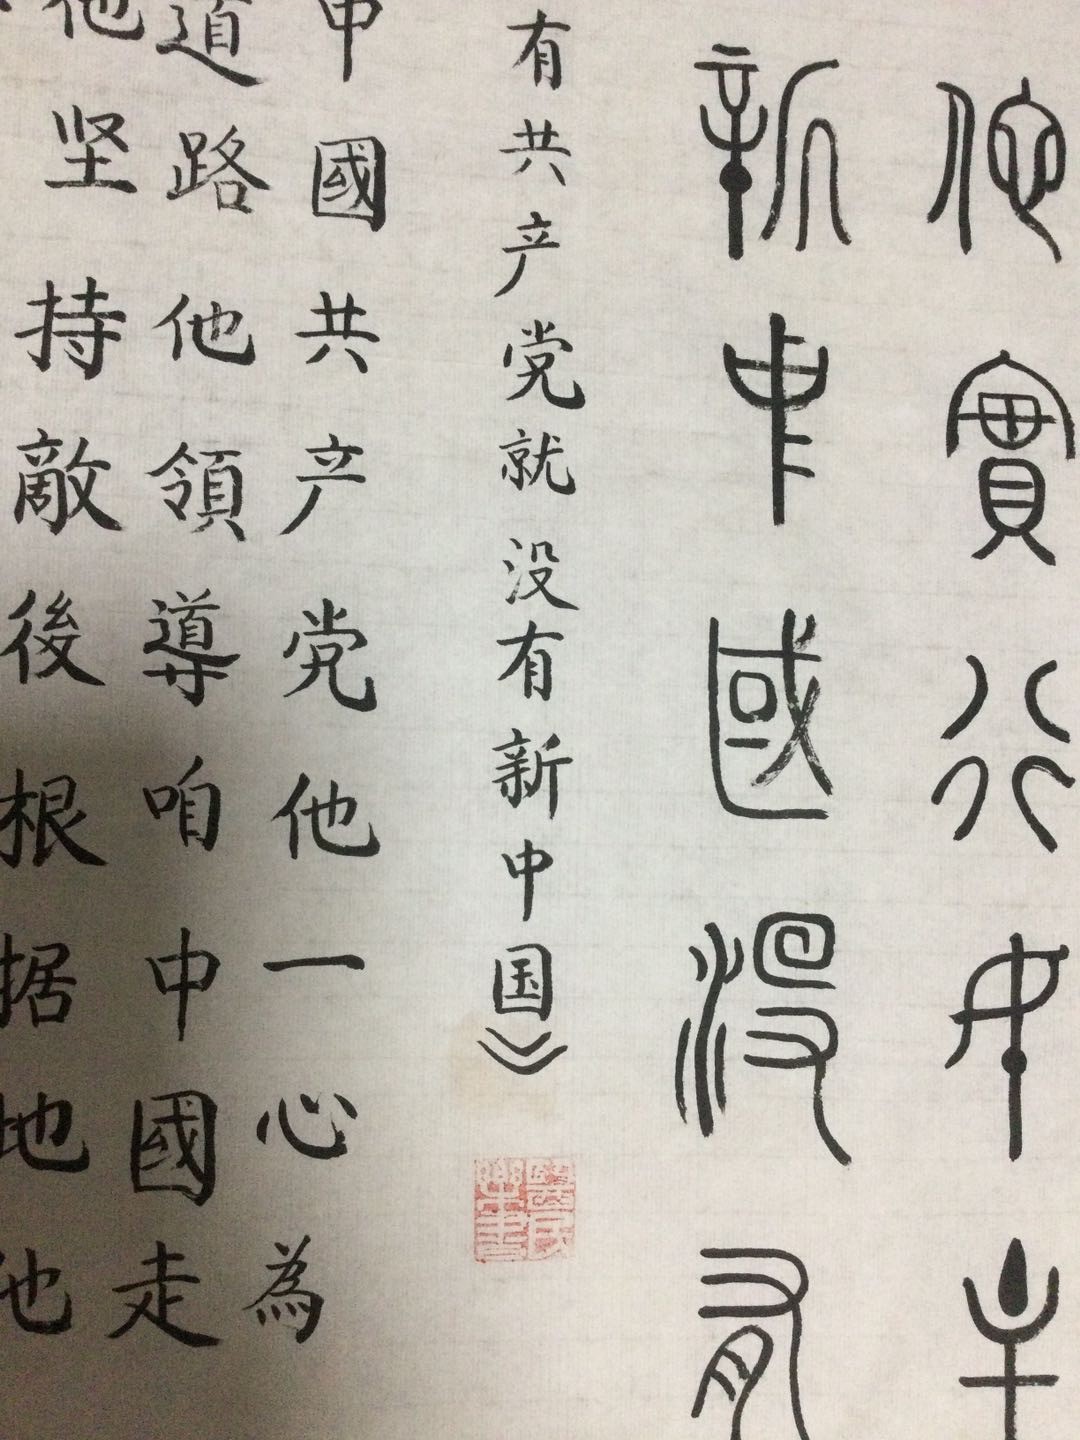 他實行民主
新中國沒有
有共产党就没有新中国》
中國共产党他一心為
道路他領導咱中國走
他坚持敵後根据地他